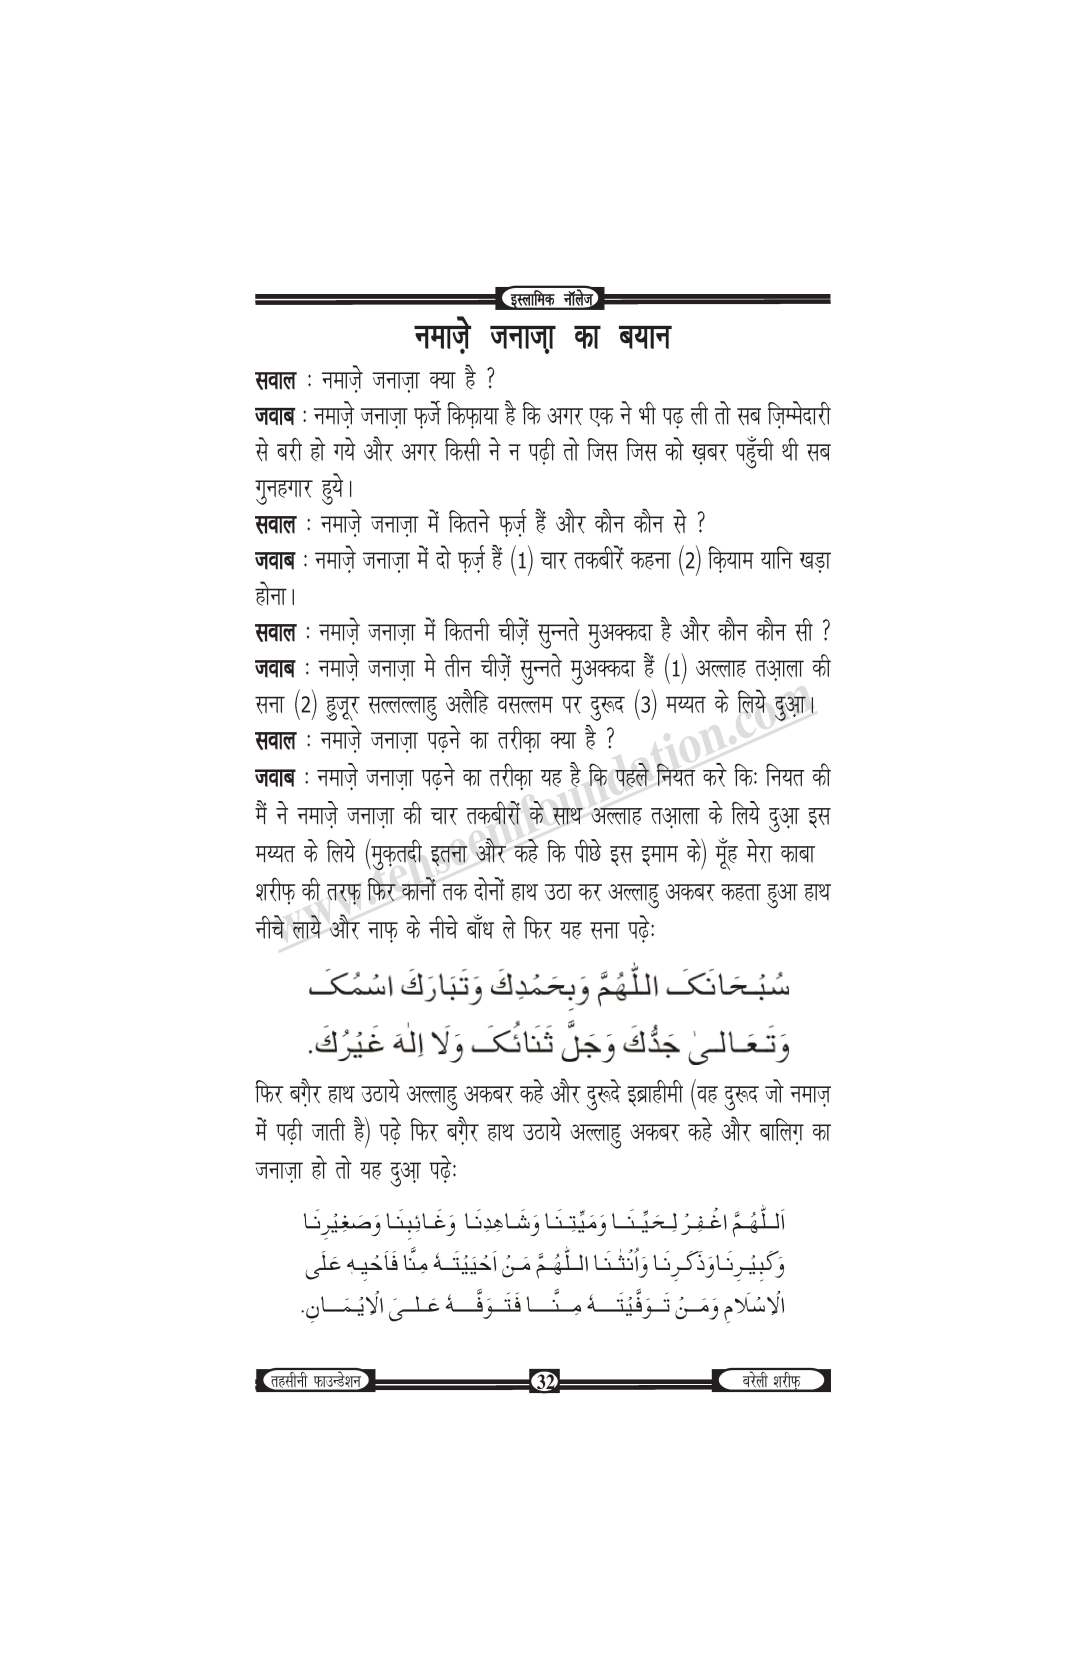 इस्लामिक नॉलेज
नमाज़े जनाज़ा का बयान
सवाल : नमाज़े जनाज़ा क्या है ?
जवाब : नमाज़े जनाज़ा फ़र्ज़े किफ़ाया है कि अगर एक ने भी पढ़ ली तो सब ज़िम्मेदारी
से बरी हो गये और अगर किसी ने न पढ़ी तो जिस जिस को ख़बर पहुँची थी सब
गुनहगार हुये।
सवाल : नमाज़े जनाज़ा में कितने फ़र्ज़ हैं और कौन कौन से ?
जवाब : नमाज़े जनाज़ा में दो फ़र्ज़ हैं (1) चार तकबीरें कहना (2) क़ियाम यानि खड़ा
होना।
सवाल : नमाज़े जनाज़ा में कितनी चीज़ें सुन्नते मुअक्कदा है और कौन कौन सी ?
जवाब : नमाज़े जनाज़ा मे तीन चीज़ें सुन्नते मुअक्कदा हैं (1) अल्लाह तआ़ला की
सना (2) हुजूर सल्लल्लाहु अलैहि वसल्लम पर दुरूद (3) मय्यत के लिये दुआ़।
सवाल : नमाज़े जनाज़ा पढ़ने का तरीक़ा क्या है ?
जवाब : नमाज़े जनाज़ा पढ़ने का तरीक़ा यह है कि पहले नियत करे किः नियत की
मैं ने नमाज़े जनाज़ा की चार तकबीरों के साथ अल्लाह तआ़ला के लिये दुआ़ इस
मय्यत के लिये (मुक़तदी इतना और कहे कि पीछे इस इमाम के) मूँह मेरा काबा
शरीफ़ की तरफ़ फिर कानों तक दोनों हाथ उठा कर अल्लाहु अकबर कहता हुआ हाथ
नीचे लाये और नाफ़ के नीचे बाँध ले फिर यह सना पढ़ेः
سُبْحَانَکَ اللّٰهُمَّ وَبِحَمْدِكَ وَتَبَارَكَ اسْمُکَ
وَتَعَالىٰ جَدُّكَ وَجَلَّ ثَنَائُکَ وَلَا اِلٰهَ غَيْرُكَ.
फिर बग़ैर हाथ उठाये अल्लाहु अकबर कहे और दुरूदे इब्राहीमी (वह दुरूद जो नमाज़
में पढ़ी जाती है) पढ़े फिर बग़ैर हाथ उठाये अल्लाहु अकबर कहे और बालिग़ का
जनाज़ा हो तो यह दुआ़ पढ़ेः
اَللّٰهُمَّ اغْفِرْ لِحَيِّنَا وَمَيِّتِنَا وَشَاهِدِنَا وَغَائِبِنَا وَصَغِيْرِنَا
وَكَبِيْرِنَا وَذَكَرِنَا وَاُنْثٰنَا اللّٰهُمَّ مَنْ اَحْيَيْتَهٗ مِنَّا فَاَحْيِهٖ عَلَى
الْاِسْلَامِ وَمَنْ تَوَفَّيْتَهٗ مِنَّا فَتَوَفَّهٗ عَلىَ الْاِيْمَانِ.
तहसीनी फाउन्डेशन
32
बरेली शरीफ़
www.tehseenifoundation.com